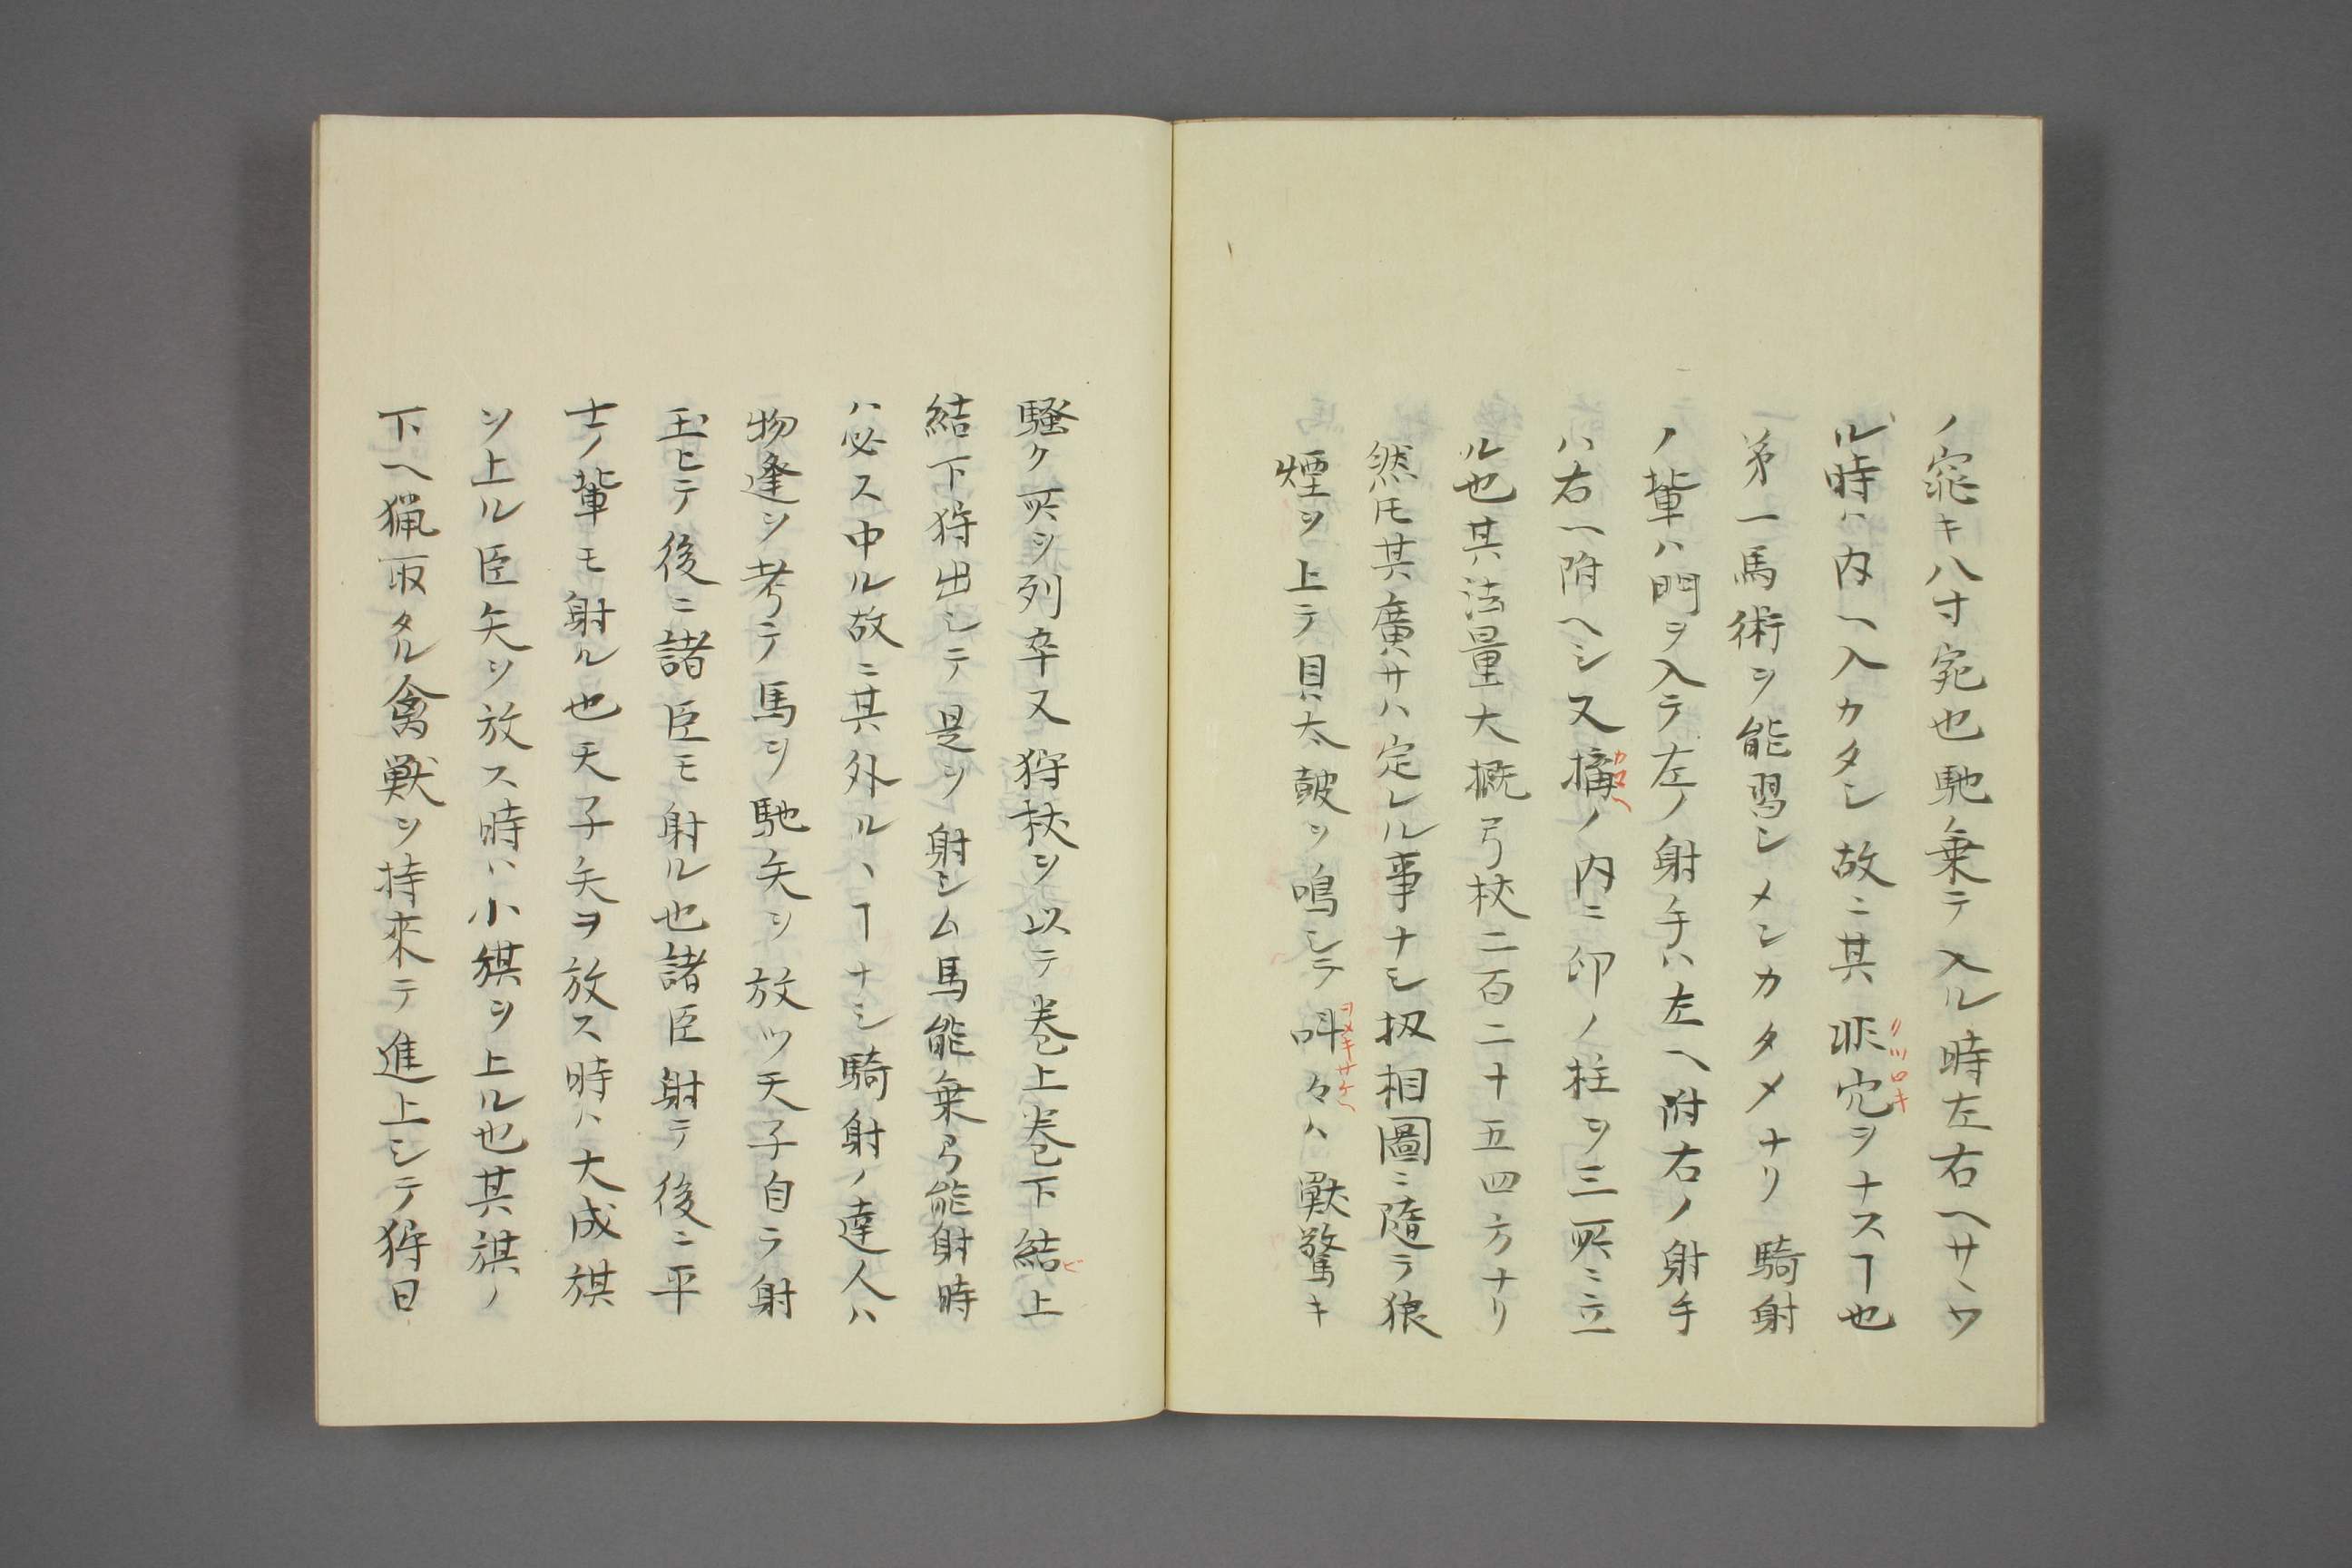 ノ窕キ八寸宛也馳乗テ入ル時左右ヘサヽワ
ル時ハ内ヘ入カタシ故ニ其非穴ヲナスヿ也
第一馬術ヲ能習シメンカタメナリ騎射
ノ輩ハ門ヲ入テ左ノ射手ハ左ヘ附右ノ射手
ハ右ヘ附ヘシ又搆ノ内ニ印ノ柱ヲ三所ニ立
カマヘ
ル也其法量大概弓杖二百二十五四方ナリ
然𪜈其廣サハ定レル事ナシ扨相圖ニ随テ狼
煙ヲ上テ貝太皷ヲ鳴シテ呌々ハ獸驚キ
ヲメキサケヘ
騒ク所ヲ列卒又狩杖ヲ以テ巻上巻下結上
ビ
結下狩出シテ是ヲ射シム馬能乗弓能射時
ハ必ス中ル故ニ其外ルヽヿナシ騎射ノ達人ハ
物逢ヲ考テ馬ヲ馳矢ヲ放ツ天子自ラ射
玉ヒテ後ニ諸臣モ射ル也諸臣射テ後ニ平
士ノ輩モ射ル也天子矢ヲ放ス時ハ大成旗
ヲ上ル臣矢ヲ放ス時ハ小旗ヲ上ル也其旗ノ
下ヘ猟取タル禽獣ヲ持来テ進上シテ狩日